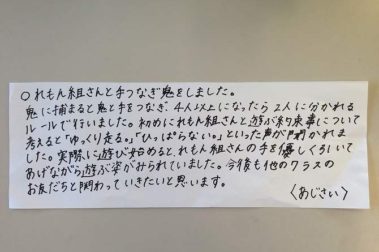 ○れもん組さんと手つなぎ鬼をしました。
鬼に捕まると鬼と手をつなぎ、4人以上になったら2人に分かれる
ルールで行いました。初めにれもん組さんと遊ぶ約束事について
考えると「ゆっくり走る。」「ひっぱらない。」といった声が聞かれま
した。実際に遊び始めると、れもん組さんの手を優しく引いて
あげながら遊ぶ姿がみられていました。今後も他のクラスの
お友だちと関わっていきたいと思います。
〈あじさい〉